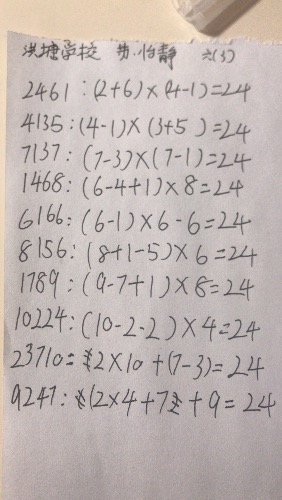 洪塘学校 劳怡静 六(3)
2461:(2+6)×(4-1)=24
4135:(4-1)×(3+5)=24
7137:(7-3)×(7-1)=24
1468:(6-4+1)×8=24
6166:(6-1)×6-6=24
8156:(8+1-5)×6=24
1789:(9-7+1)×8=24
10224:(10-2-2)×4=24
23710:2×10+(7-3)=24
9247:(2×4+7)+9=24